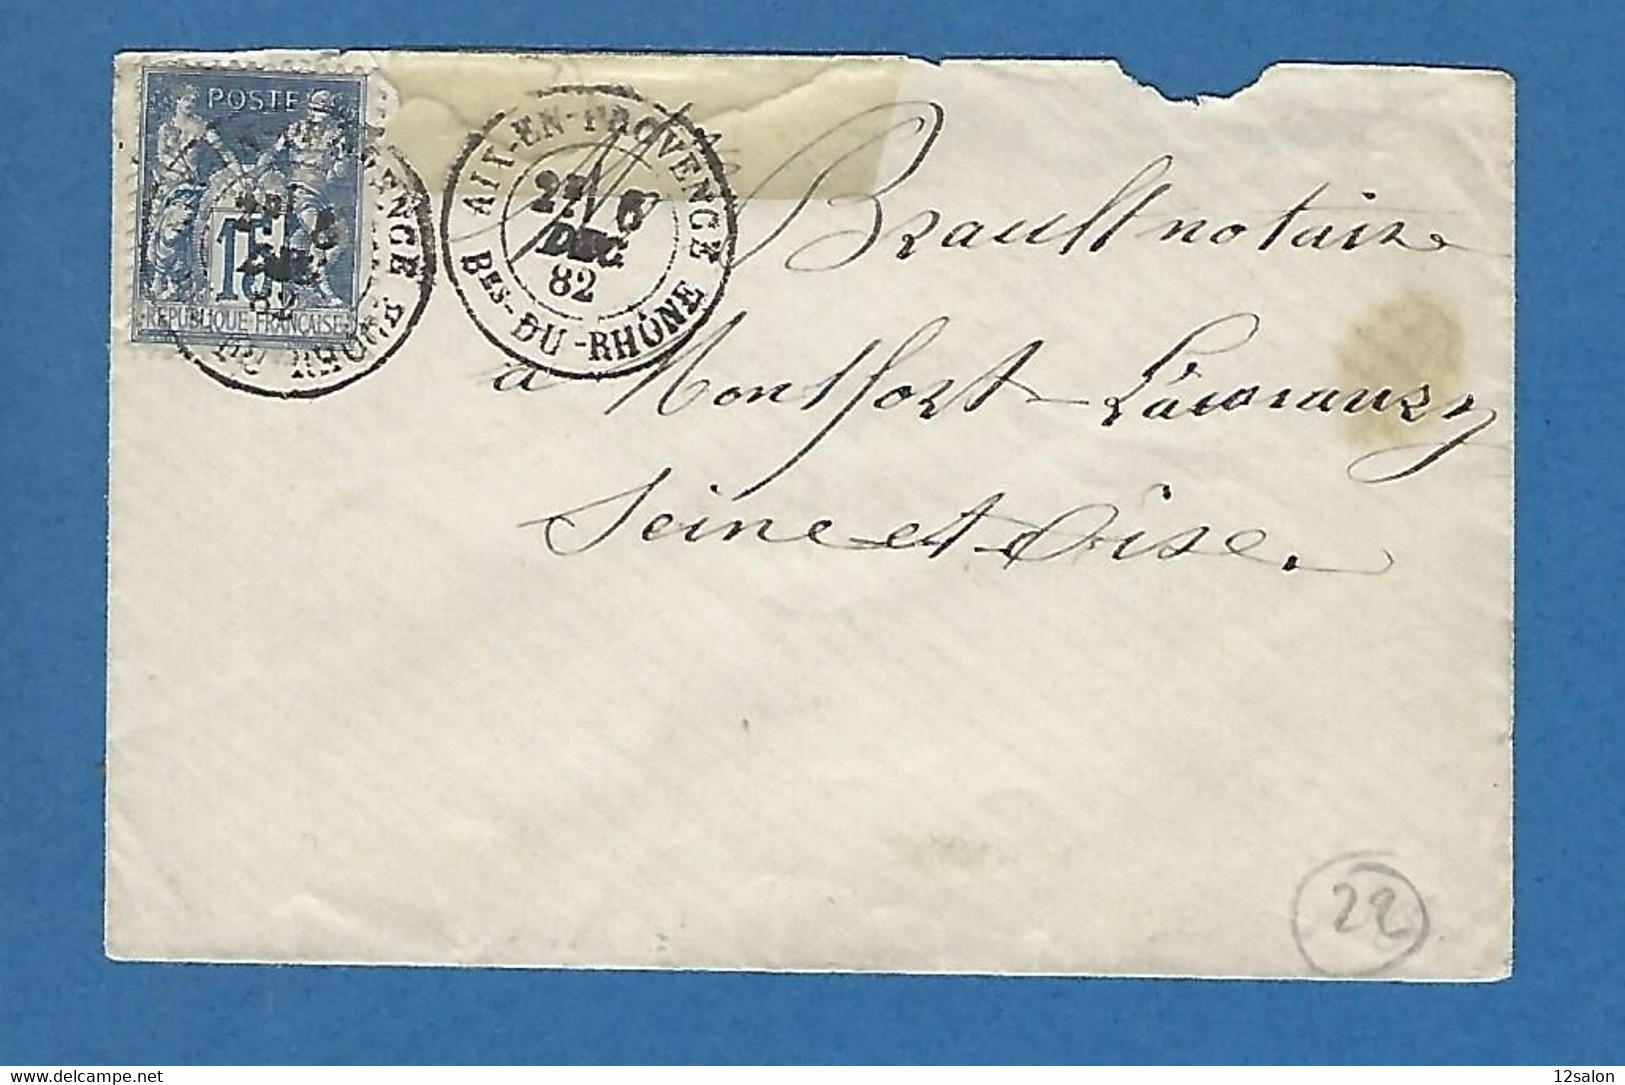 POSTE
15
REPUBLIQUE FRANÇAISE
82
DU-RHÔNE
AIX-EN-PROVENCE
6
DEC.
82
BES-DU-RHÔNE
Brault notaire
a Montfort-L'amaury
Seine et Oise.
22
12salon